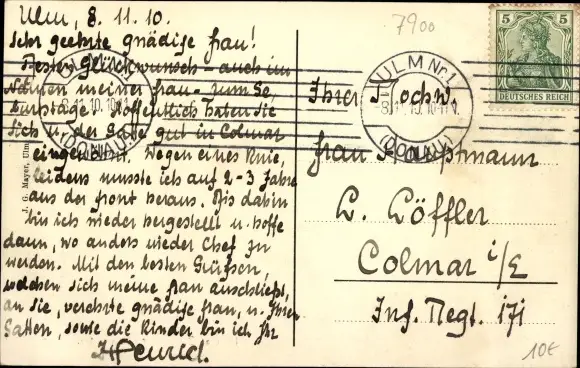 Ulm, 8. 11. 10.
Sehr geehrte gnädige Frau!
Besten Glückwunsch – auch im
Namen meiner Frau – zum Ge
burtstage! Hoffentlich haben Sie
sich u. der Gatte gut in Colmar
eingewöhnt. Wegen eines Knie,
leidens musste ich auf 2–3 Jahre
aus der Front heraus. Bis dahin
bin ich wieder hergestellt u. hoffe
dann, wo anders wieder Chef zu
werden. Mit den besten Grüssen,
welchen sich meine Frau anschliesst,
an Sie, verehrte gnädige Frau, u. Ihren
Gatten, sowie die Kinder bin ich Ihr
J. G. Mayer, Ulm
7900
ULM Nr. 1
(DONAU)
5 5
DEUTSCHES REICH
Ihrer Hochw.
Frau Hauptmann
L. Löffler
Colmar i/E
Inf. Regt. 171
10€